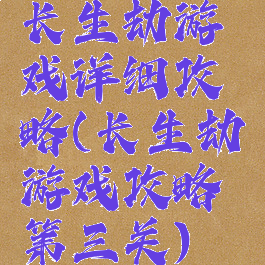 长生劫游
戏详细攻
略(长生劫
游戏攻略
第三关)